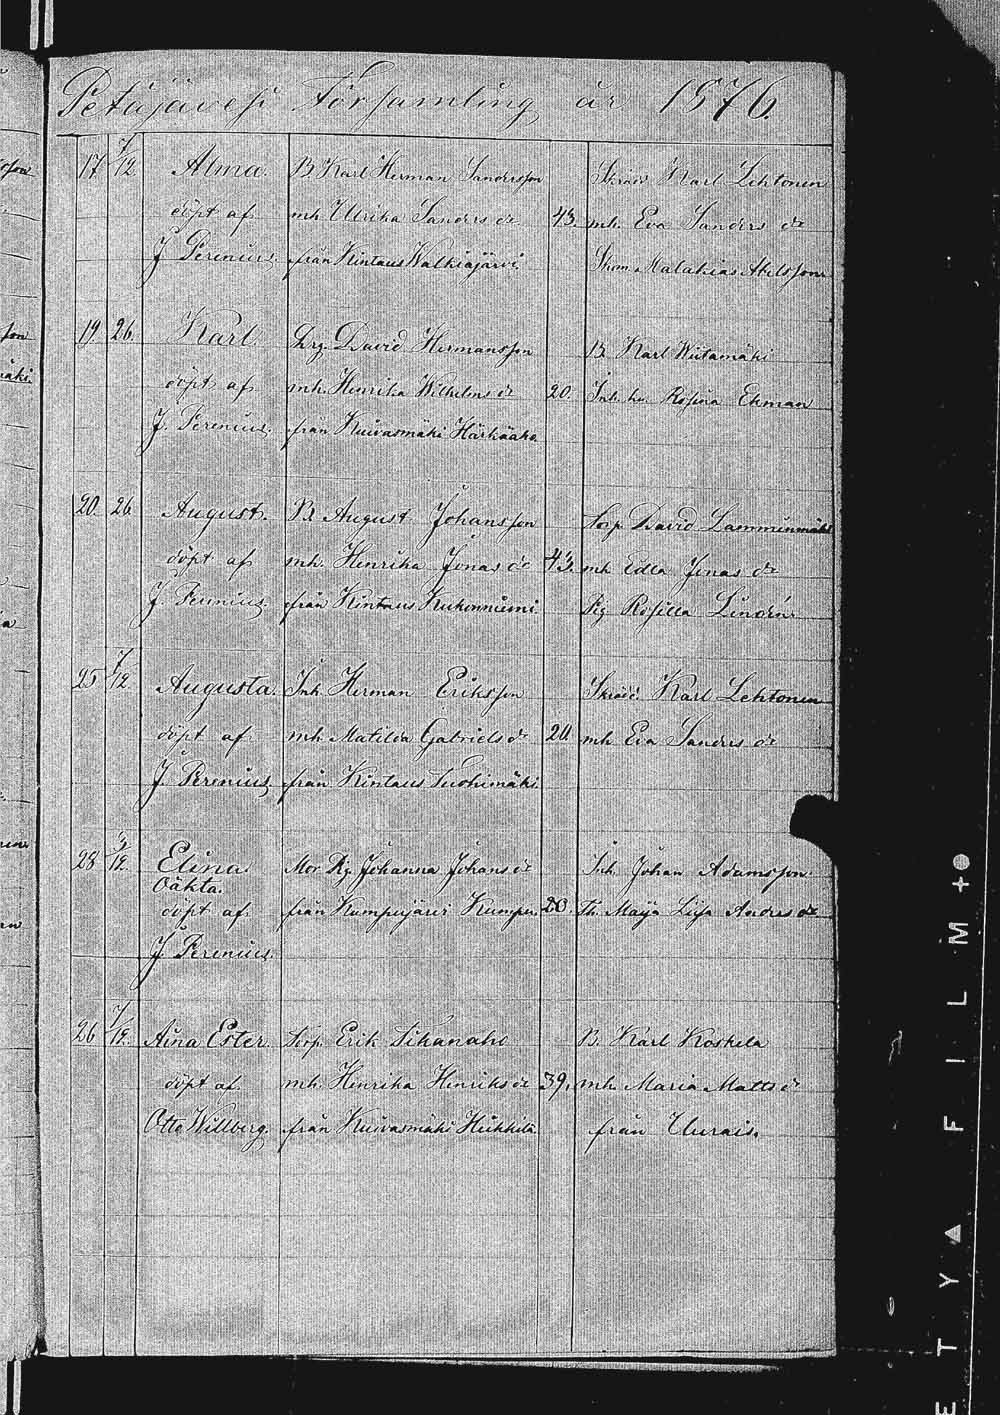 Petäjävesi Församling år 1876.
17 7/12 Alma. B. Karl Herman Sandersson Skradd. Karl Lehtonen
döpt af mh. Ulrika Sanders dr 43. mh. Eva Sanders dr
J. Perenius. från Kintaus Walkiajärvi Malakias Abelsson
19 26. Karl. Drg. David Hermansson B. Karl Wiitamäki
döpt af mh. Henrika Wilhelms dr 20. Inh. hu. Rosina Ekman
J. Perenius. från Kuivasmäki Härkäaho
20. 26 August. B. August Johansson Torp. David Lamminmäki
döpt af mh. Henrika Jonas dr 43. mh. Edla Jonas dr
J. Perenius. från Kintaus Kukonniemi Pig. Rosilla Lindén
25 7/12 Augusta. Inh. Herman Eriksson Skradd. Karl Lehtonen
döpt af mh. Matilda Gabriels dr 20. mh. Eva Sanders dr
J. Perenius från Kintaus Tuohimäki.
28 /12. Elina Mor. Pig. Johanna Johans dr Inh. Johan Adamsson
Oäkta.
döpt af från Kumpujärvi Kumpu. 20. Th. Maija Lisa Anders dr
J. Perenius.
26 7/12. Aina Ester. Torp. Erik Tihanaho B. Karl Koskela
döpt af mh. Henrika Henriks dr 39. mh. Maria Matts dr
Otto Willberg. från Kuivasmäki Heikkilä från Uurais.
E T Y A F I L M